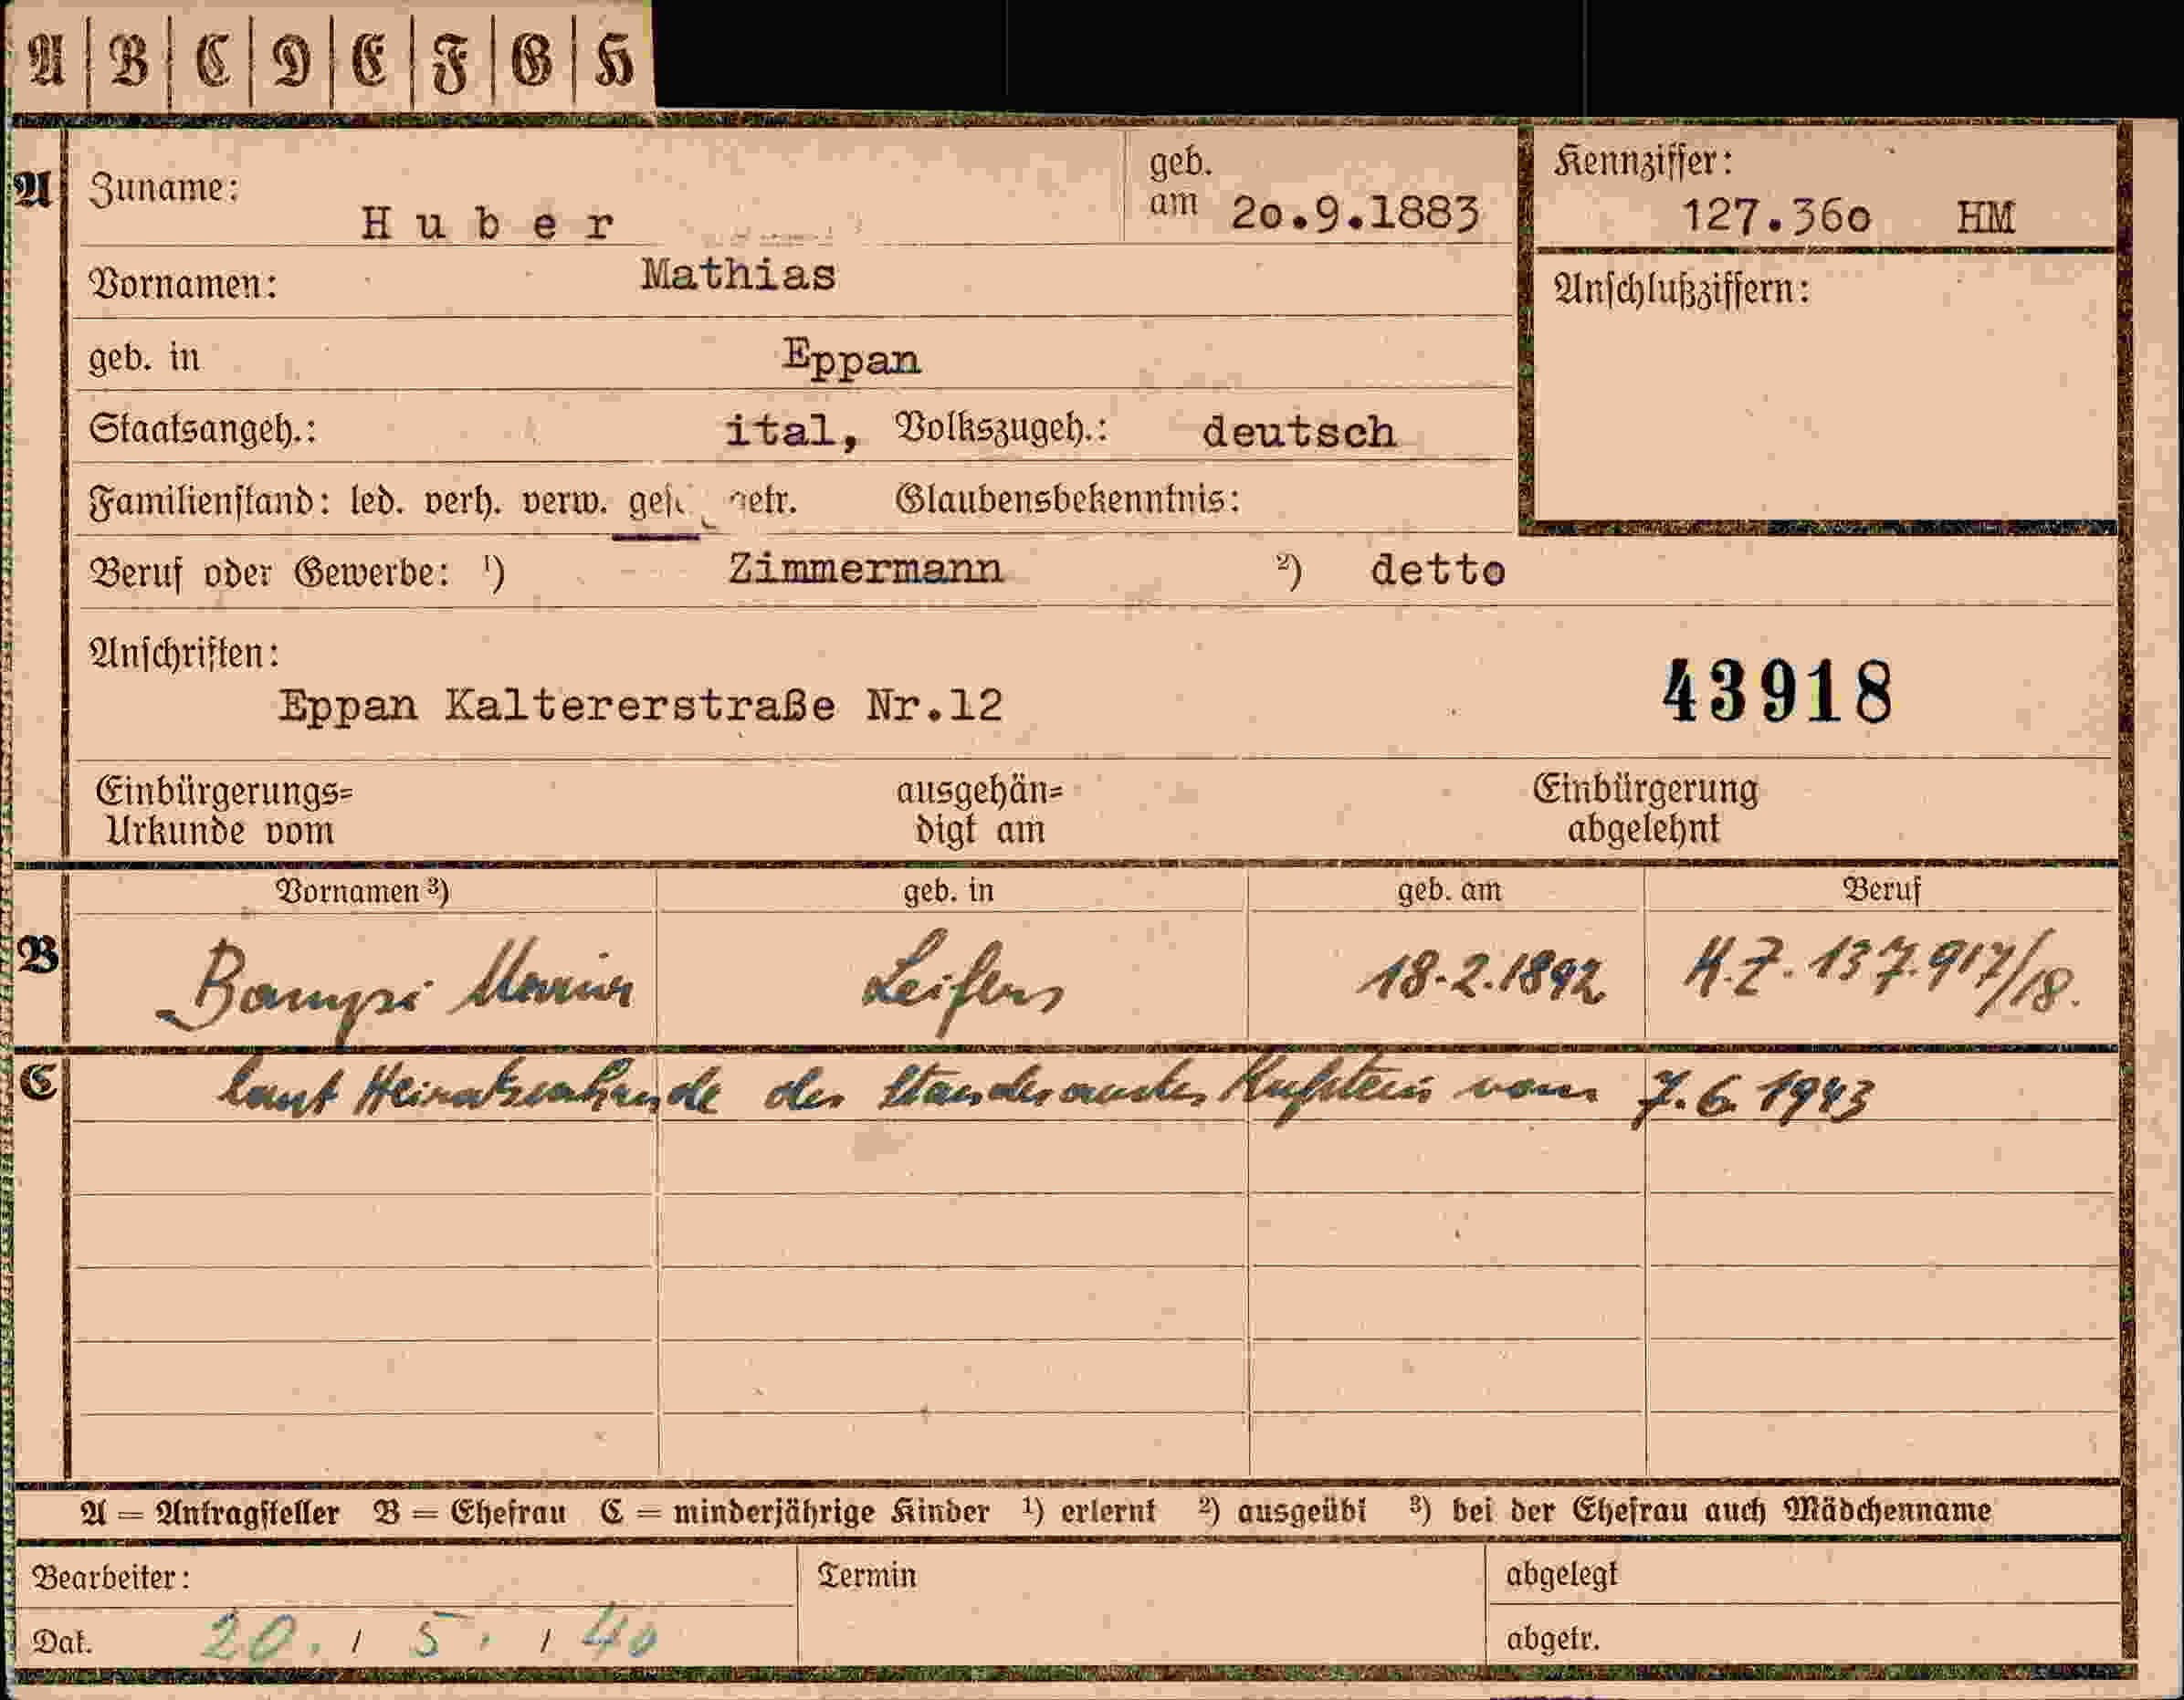 A | B | C | D | E | F | G | H
A
Zuname: Huber
geb. am 20.9.1883
Kennziffer: 127.360 HM
Vornamen: Mathias
Anschlußziffern:
geb. in Eppan
Staatsangeh.: ital, Volkszugeh.: deutsch
Familienstand: led. verh. verw. getr. Glaubensbekenntnis:
Beruf oder Gewerbe: ¹) Zimmermann ²) detto
Anschriften:
Eppan Kaltererstraße Nr.12
43918
Einbürgerungs=
Urkunde vom
ausgehän=
digt am
Einbürgerung
abgelehnt
Vornamen ³) geb. in geb. am Beruf
B
Bampi Maria Leifers 18.2.1892 K.Z. 137.917/18.
C
laut Heiratsurkunde des Standesamtes Kufstein vom 7.6.1943
A = Antragsteller B = Ehefrau C = minderjährige Kinder ¹) erlernt ²) ausgeübt ³) bei der Ehefrau auch Mädchenname
Bearbeiter:
Termin
abgelegt
Dat. 20. / 5. / 40
abgetr.